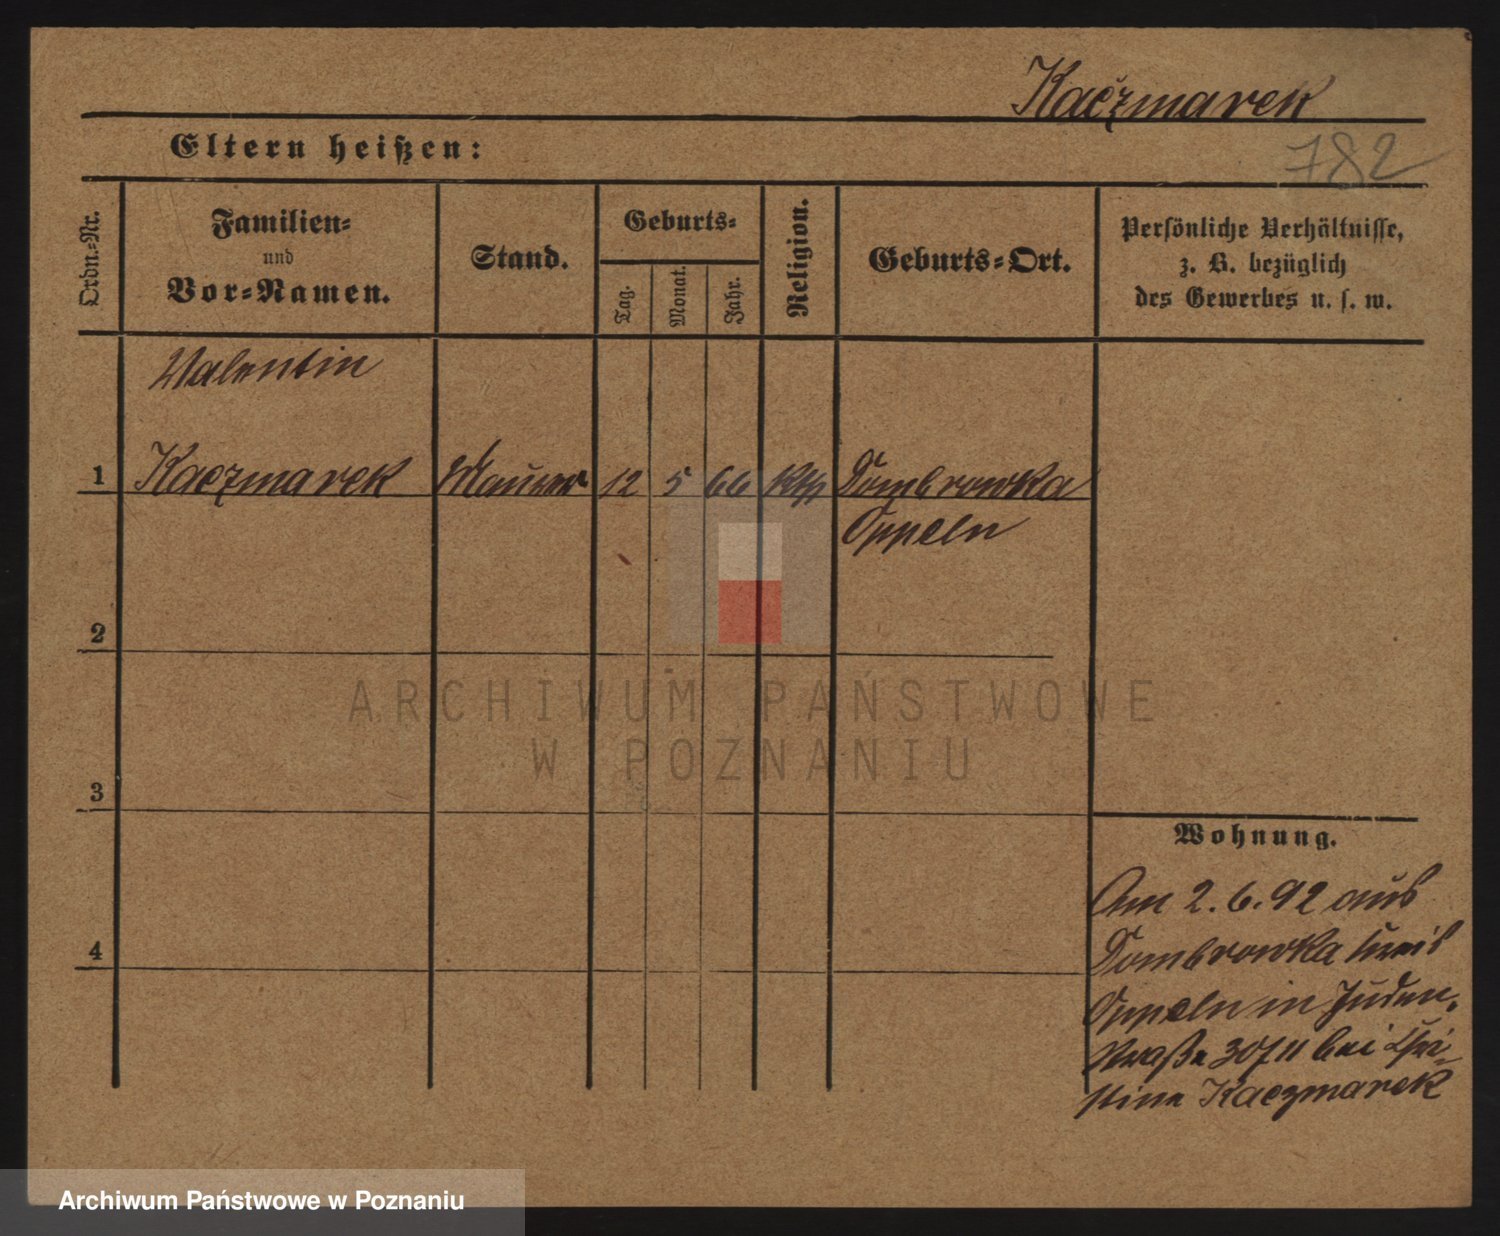 Kaczmarek
Eltern heißen:
782
Ordn.=Nr.
Familien=
und
Vor=Namen.
Stand.
Geburts=
Tag.
Monat.
Jahr.
Religion.
Geburts=Ort.
Persönliche Verhältnisse,
z. B. bezüglich
des Gewerbes u. s. w.
Valentin
1 Kaczmarek Maurer 12 5 66 kth Dombrowka
Oppeln
2
3
4
Wohnung.
Am 2.6.92 aus
Dombrowka Kreis
Oppeln in Juden-
straße 30/II bei Chri-
stine Kaczmarek
ARCHIWUM PAŃSTWOWE
W POZNANIU
Archiwum Państwowe w Poznaniu